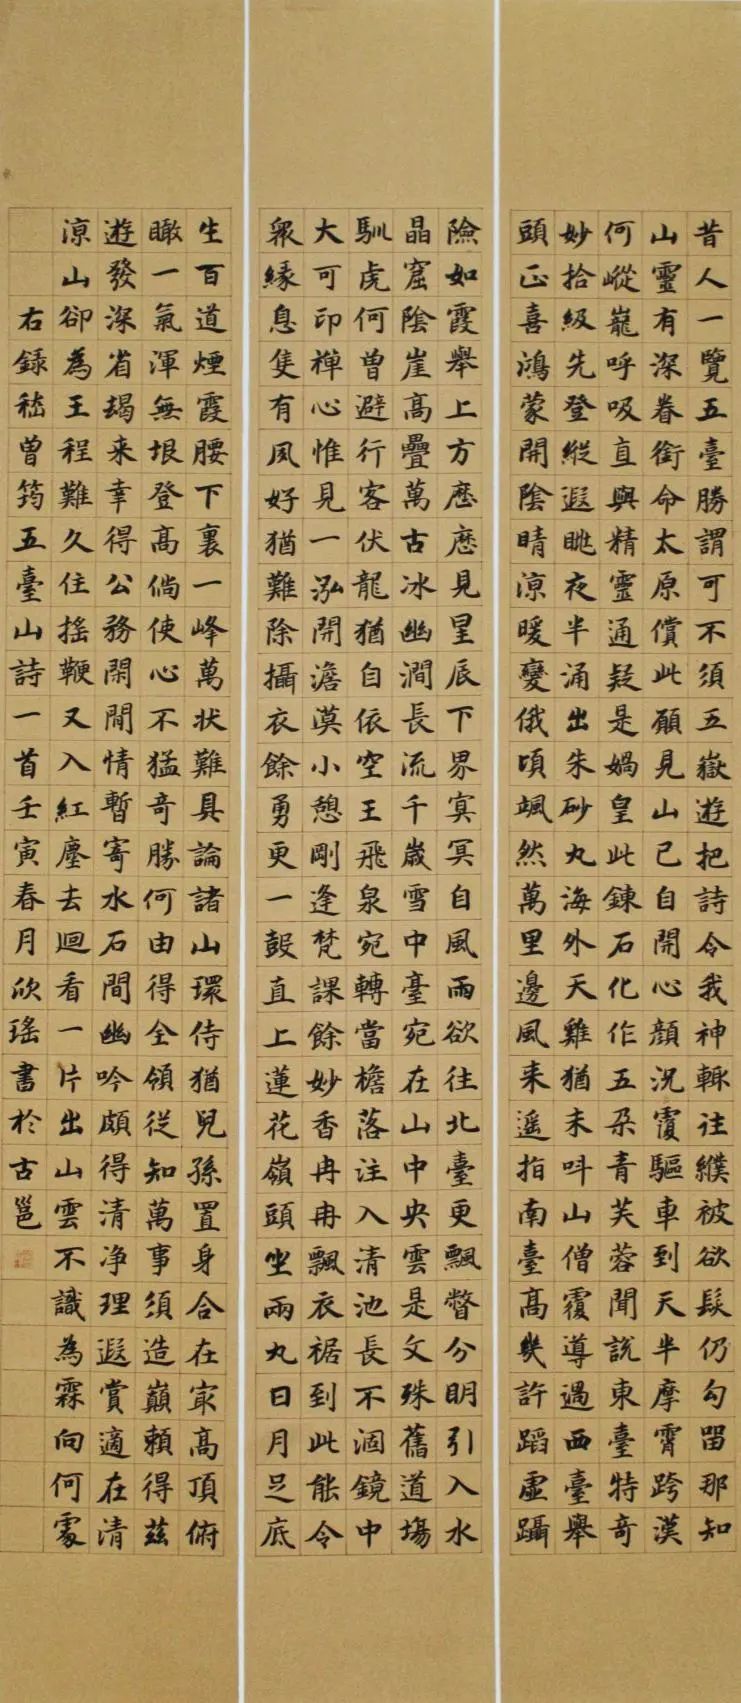 昔人一覽五臺勝謂可不須五嶽遊把詩令我神輒往襆被欲髮仍勾留那知
山靈有深眷銜命太原償此願見山已自開心顏況覆驅車到天半摩霄跨漢
何嵷巃呼吸直與精靈通疑是媧皇此鍊石化作五朵青芙蓉聞說東臺特奇
妙拾級先登縱遐眺夜半涌出朱砂丸海外天雞猶未叫山僧覆導遇西臺舉
頭正喜鴻蒙開陰晴涼暖變俄頃颯然萬里邊風来遥指南臺高幾許蹈虛躡
險如霞舉上方歷歷見星辰下界冥冥自風雨欲往北臺更飄瞥分明引入水
晶窟陰崖高疊萬古冰幽澗長流千歲雪中臺宛在山中央雲是文殊舊道場
馴虎何曾避行客伏龍猶自依空王飛泉宛轉當檐落注入清池長不涸鏡中
大可印禪心惟見一泓開澹漠小憩剛逢梵課餘妙香冉冉飄衣裾到此能令
眾緣息隻有風好猶難除攝衣餘勇更一鼓直上蓮花嶺頭坐兩丸日月足底
生百道煙霞腰下裏一峰萬狀難具論諸山環侍猶兒孫置身合在最高頂俯
瞰一氣渾無垠登高倘使心不猛奇勝何由得全領從知萬事須造巔賴得茲
遊發深省朅来幸得公務閑閒情暫寄水石間幽吟頗得清净理遐賞適在清
涼山卻為王程難久住搖鞭又入紅塵去迴看一片出山雲不識為霖向何處
右錄嵇曾筠五臺山詩一首壬寅春月欣瑤書於古邕